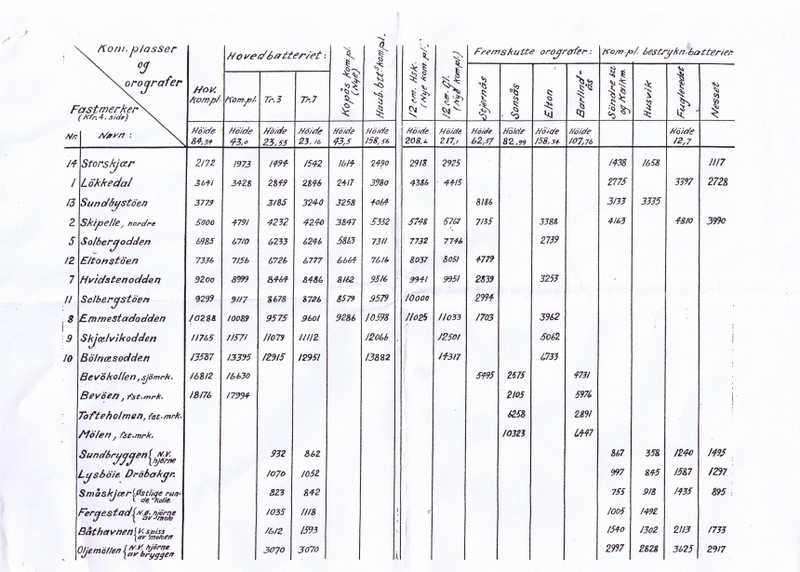 Kom.plasser og orografer
Hovedbatteriet:
Fremskutte orografer:
Kom.pl. bestrykn.batterier
Fastmerker
(Kfr. 4. side)
Hov. Kompl.
Kompl.
Tr.3
Tr.7
Kopås kompl. (Nye)
Haub.btt kompl.
12 cm. Hsk. (Nye kompl.)
12 cm. Gj. (Nye kompl)
Stjernås
Sonsås
Elton
Barlindås
Söndre og Kalkm.
Husvik
Fugleredet
Nesset
Nr. Navn: Höide 84,94 Höide 43,0 Höide 23,53 Höide 23,16 Höide 43,5 Höide 158,56 Höide 208,2 Höide 217,1 Höide 62,57 Höide 82,99 Höide 158,34 Höide 107,76 Höide 12,7
14 Storskjær 2172 1973 1494 1542 1614 2490 2918 2925 1438 1658 1117
1 Lökkedal 3641 3428 2849 2846 2417 3980 4386 4415 2775 3397 2728
13 Sundbystöen 3779 3185 3240 3258 4064 8186 3133 3335
2 Skipelle, nordre 5000 4791 4232 4240 3847 5332 5748 5767 7135 3388 4163 4810 3990
5 Solbergodden 6985 6710 6233 6246 5863 7311 7732 7746 2739
12 Eltonstöen 7336 7156 6726 6777 6664 7616 8037 8051 4779
7 Hvidstenodden 9200 8999 8464 8486 8162 9516 9941 9951 2839 3253
11 Selbergstöen 9299 9117 8678 8726 8579 9579 10000 2994
8 Emmestadodden 10288 10089 9575 9601 9286 10598 11025 11033 1703 3962
9 Skjælvikodden 11765 11571 11079 11112 12066 12501 5062
10 Bölnæsodden 13587 13395 12915 12951 13882 14317 6733
Bevökollen, sjömrk. 16812 16630 5495 2575 4731
Bevöen, fst.mrk. 18176 17994 2105 5976
Tofteholmen, fst.mrk. 6258 2891
Mölen, fst.mrk. 10323 6447
Sundbryggen {N.V. hjörne 932 862 867 358 1240 1495
Lysböie Dröbakgr. 1070 1052 997 845 1587 1297
Småskjær {Östlige runde kolle 823 842 755 918 1435 895
Fergestad {N.ø. hjörne av moh 1035 1118 1005 1492
Båthavnen {V. spiss av moloen 1612 1593 1540 1302 2113 1733
Oljemöllen {N.V. hjörne av bryggen 3070 3070 2997 2828 3625 2917